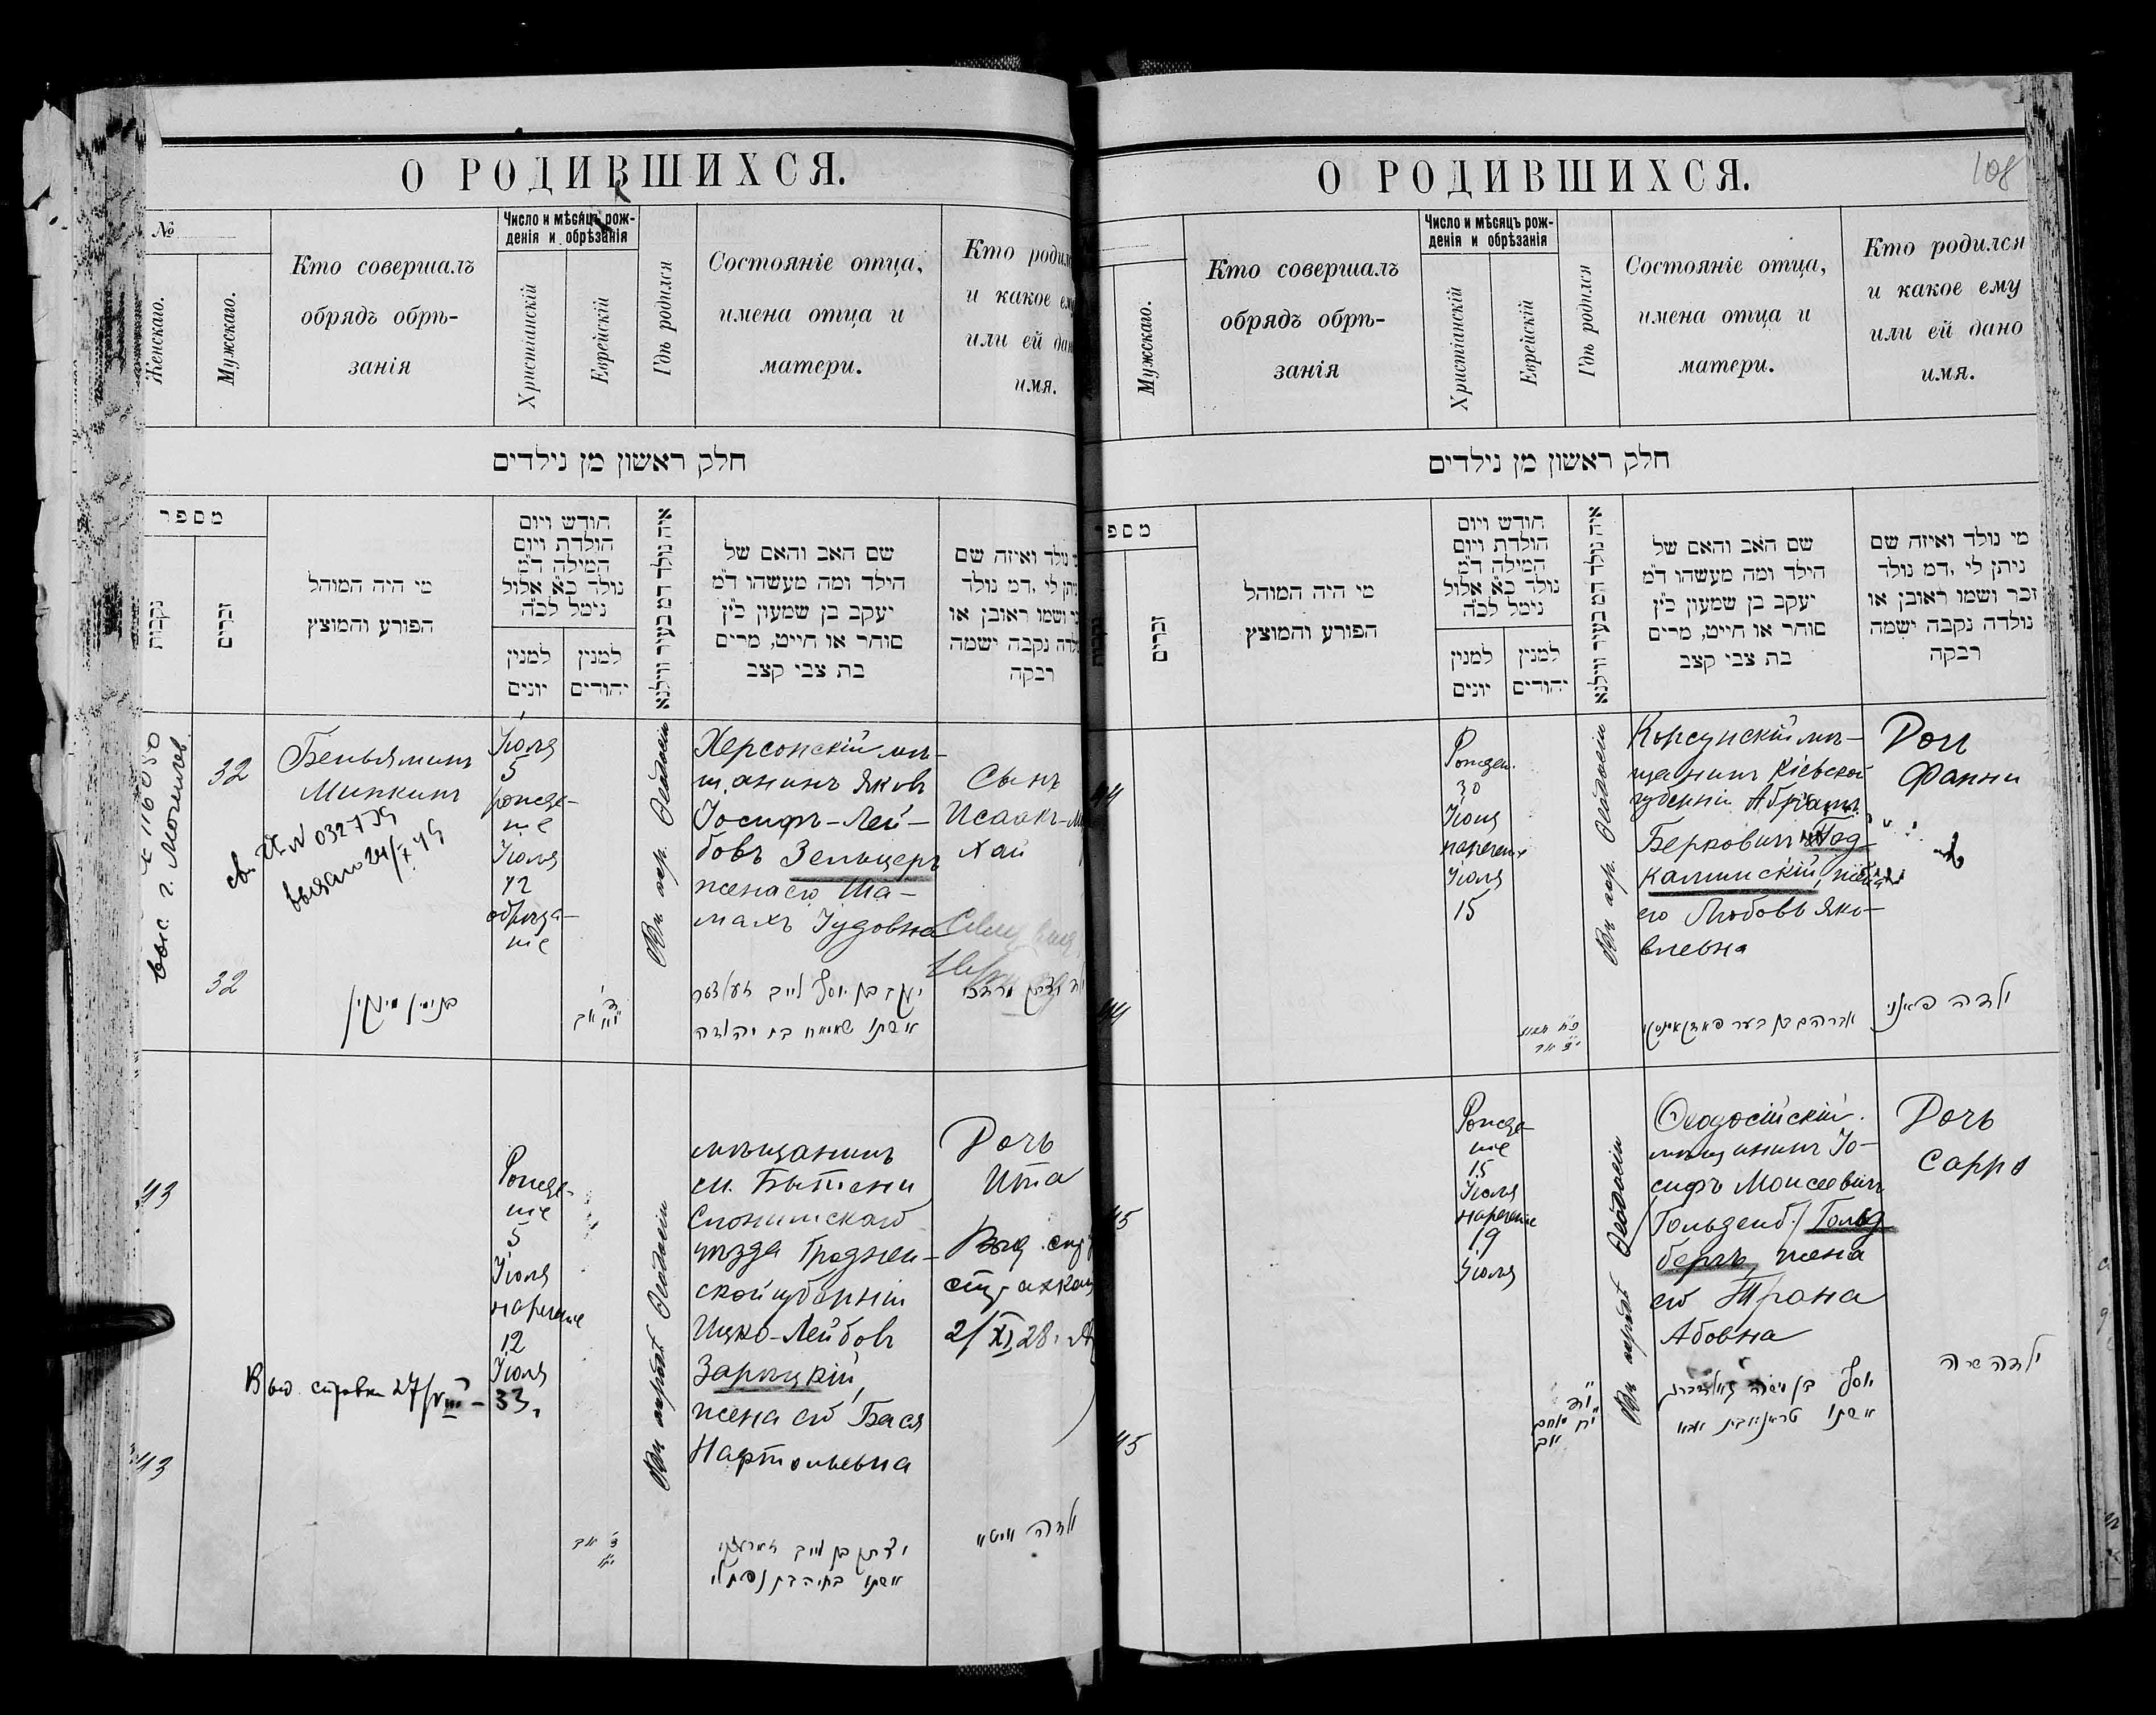 О РОДИВШИХСЯ.
№
Женскаго.
Мужскаго.
Кто совершалъ
обрядъ обрѣ-
занія
Число и мѣсяцъ рож-
денія и обрѣзанія
Христіанскій
Еврейскій
Гдѣ родился
Состояніе отца,
имена отца и
матери.
Кто родил
и какое ем
или ей дан
имя.
חלק ראשון מן נילדים
מספר
נקבות
זכרים
מי היה המוהל
הפורע והמוצץ
חודש ויום
הולדת ויום
המילה ד"מ
נולד כ"א אלול
נימל לכ"ה
למנין
יונים
למנין
יהודים
איה נולד דמ בעיר ווילנא
שם האב והאם של
הילד ומה מעשהו ד"מ
יעקב בן שמעון כ"ץ
סוחר או חייט, מרים
בת צבי קצב
נולד ואיזה שם
ניתן לי .דמ נולד
ושמו ראובן או
נקבה ישמה
רבקה
116080
выс. г. Могилев
32
Беньяминъ
Минкинъ
св. № 032739
выслано 24/X 49
Іюля
5
рожде-
ніе
Іюля
12
обрѣза-
ніе
Въ гор. Ѳеодосіи
Херсонскій мѣ-
щанинъ Яковъ
Іосифъ-Лей-
бовъ Зельцеръ
жена его Ша-
махъ Іудовна
Сынъ
Исаакъ-М
хай
32
בנימין מינקין
יעקב בן יוסף לייב זעלצער
אשתו שאמאח בת יהודה
43
Рожде-
ніе
5
Іюля
нареченіе
12
Іюля
Выд. справка 27/VIII - 33,
Въ городѣ Ѳеодосіи
мѣщанинъ
м. Бытени
Слонимскаго
уѣзда Гроднен-
ской губерніи
Ицко-Лейбовъ
Зарѣцкій,
жена его Бася
Нафтольевна
Дочь
Ита
Выд.
2/XI 28.
43
יצחק בן לייב זארעצקי
אשתו בתיה בת נפתלי
ילדה איטא
О РОДИВШИХСЯ.
108
Мужскаго.
Кто совершалъ
обрядъ обрѣ-
занія
Число и мѣсяцъ рож-
денія и обрѣзанія
Христіанскій
Еврейскій
Гдѣ родился
Состояніе отца,
имена отца и
матери.
Кто родился
и какое ему
или ей дано
имя.
חלק ראשון מן נילדים
מספר
זכרים
מי היה המוהל
הפורע והמוצץ
חודש ויום
הולדת ויום
המילה ד"מ
נולד כ"א אלול
נימל לכ"ה
למנין
יונים
למנין
יהודים
איה נולד דמ בעיר ווילנא
שם האב והאם של
הילד ומה מעשהו ד"מ
יעקב בן שמעון כ"ץ
סוחר או חייט, מרים
בת צבי קצב
מי נולד ואיזה שם
ניתן לי .דמ נולד
זכר ושמו ראובן או
נולדה נקבה ישמה
רבקה
44
Рожден.
30
Іюня
нареченіе
Іюля
15
Въ гор. Ѳеодосіи
Корсунскій мѣ-
щанинъ Кіевской
губерніи Абрамъ
Берковичъ Под-
каминскій, жена
его Любовь Яко-
влевна
Доч
Фанни
44
אברהם בן בער פאדקאמינסקי
ילדה פאני
45
Рожде-
ніе
15
Іюля
нареченіе
19
Іюля
Въ городѣ Ѳеодосіи
Ѳеодосійскій
мѣщанинъ Іо-
сифъ Моисеевичъ
Гольденб./Гольд
бергъ, жена
его Трана
Абовна
Дочь
Сарра
45
יוסף בן משה גאלדבערג
אשתו טראנא בת אבא
ילדה שרה